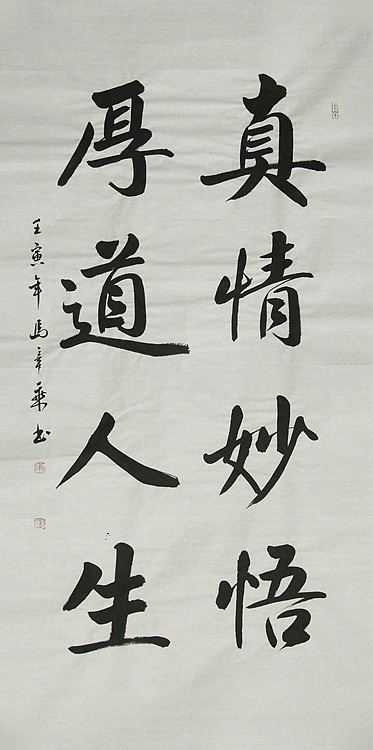 真情妙悟
厚道人生
壬寅年马章乘书